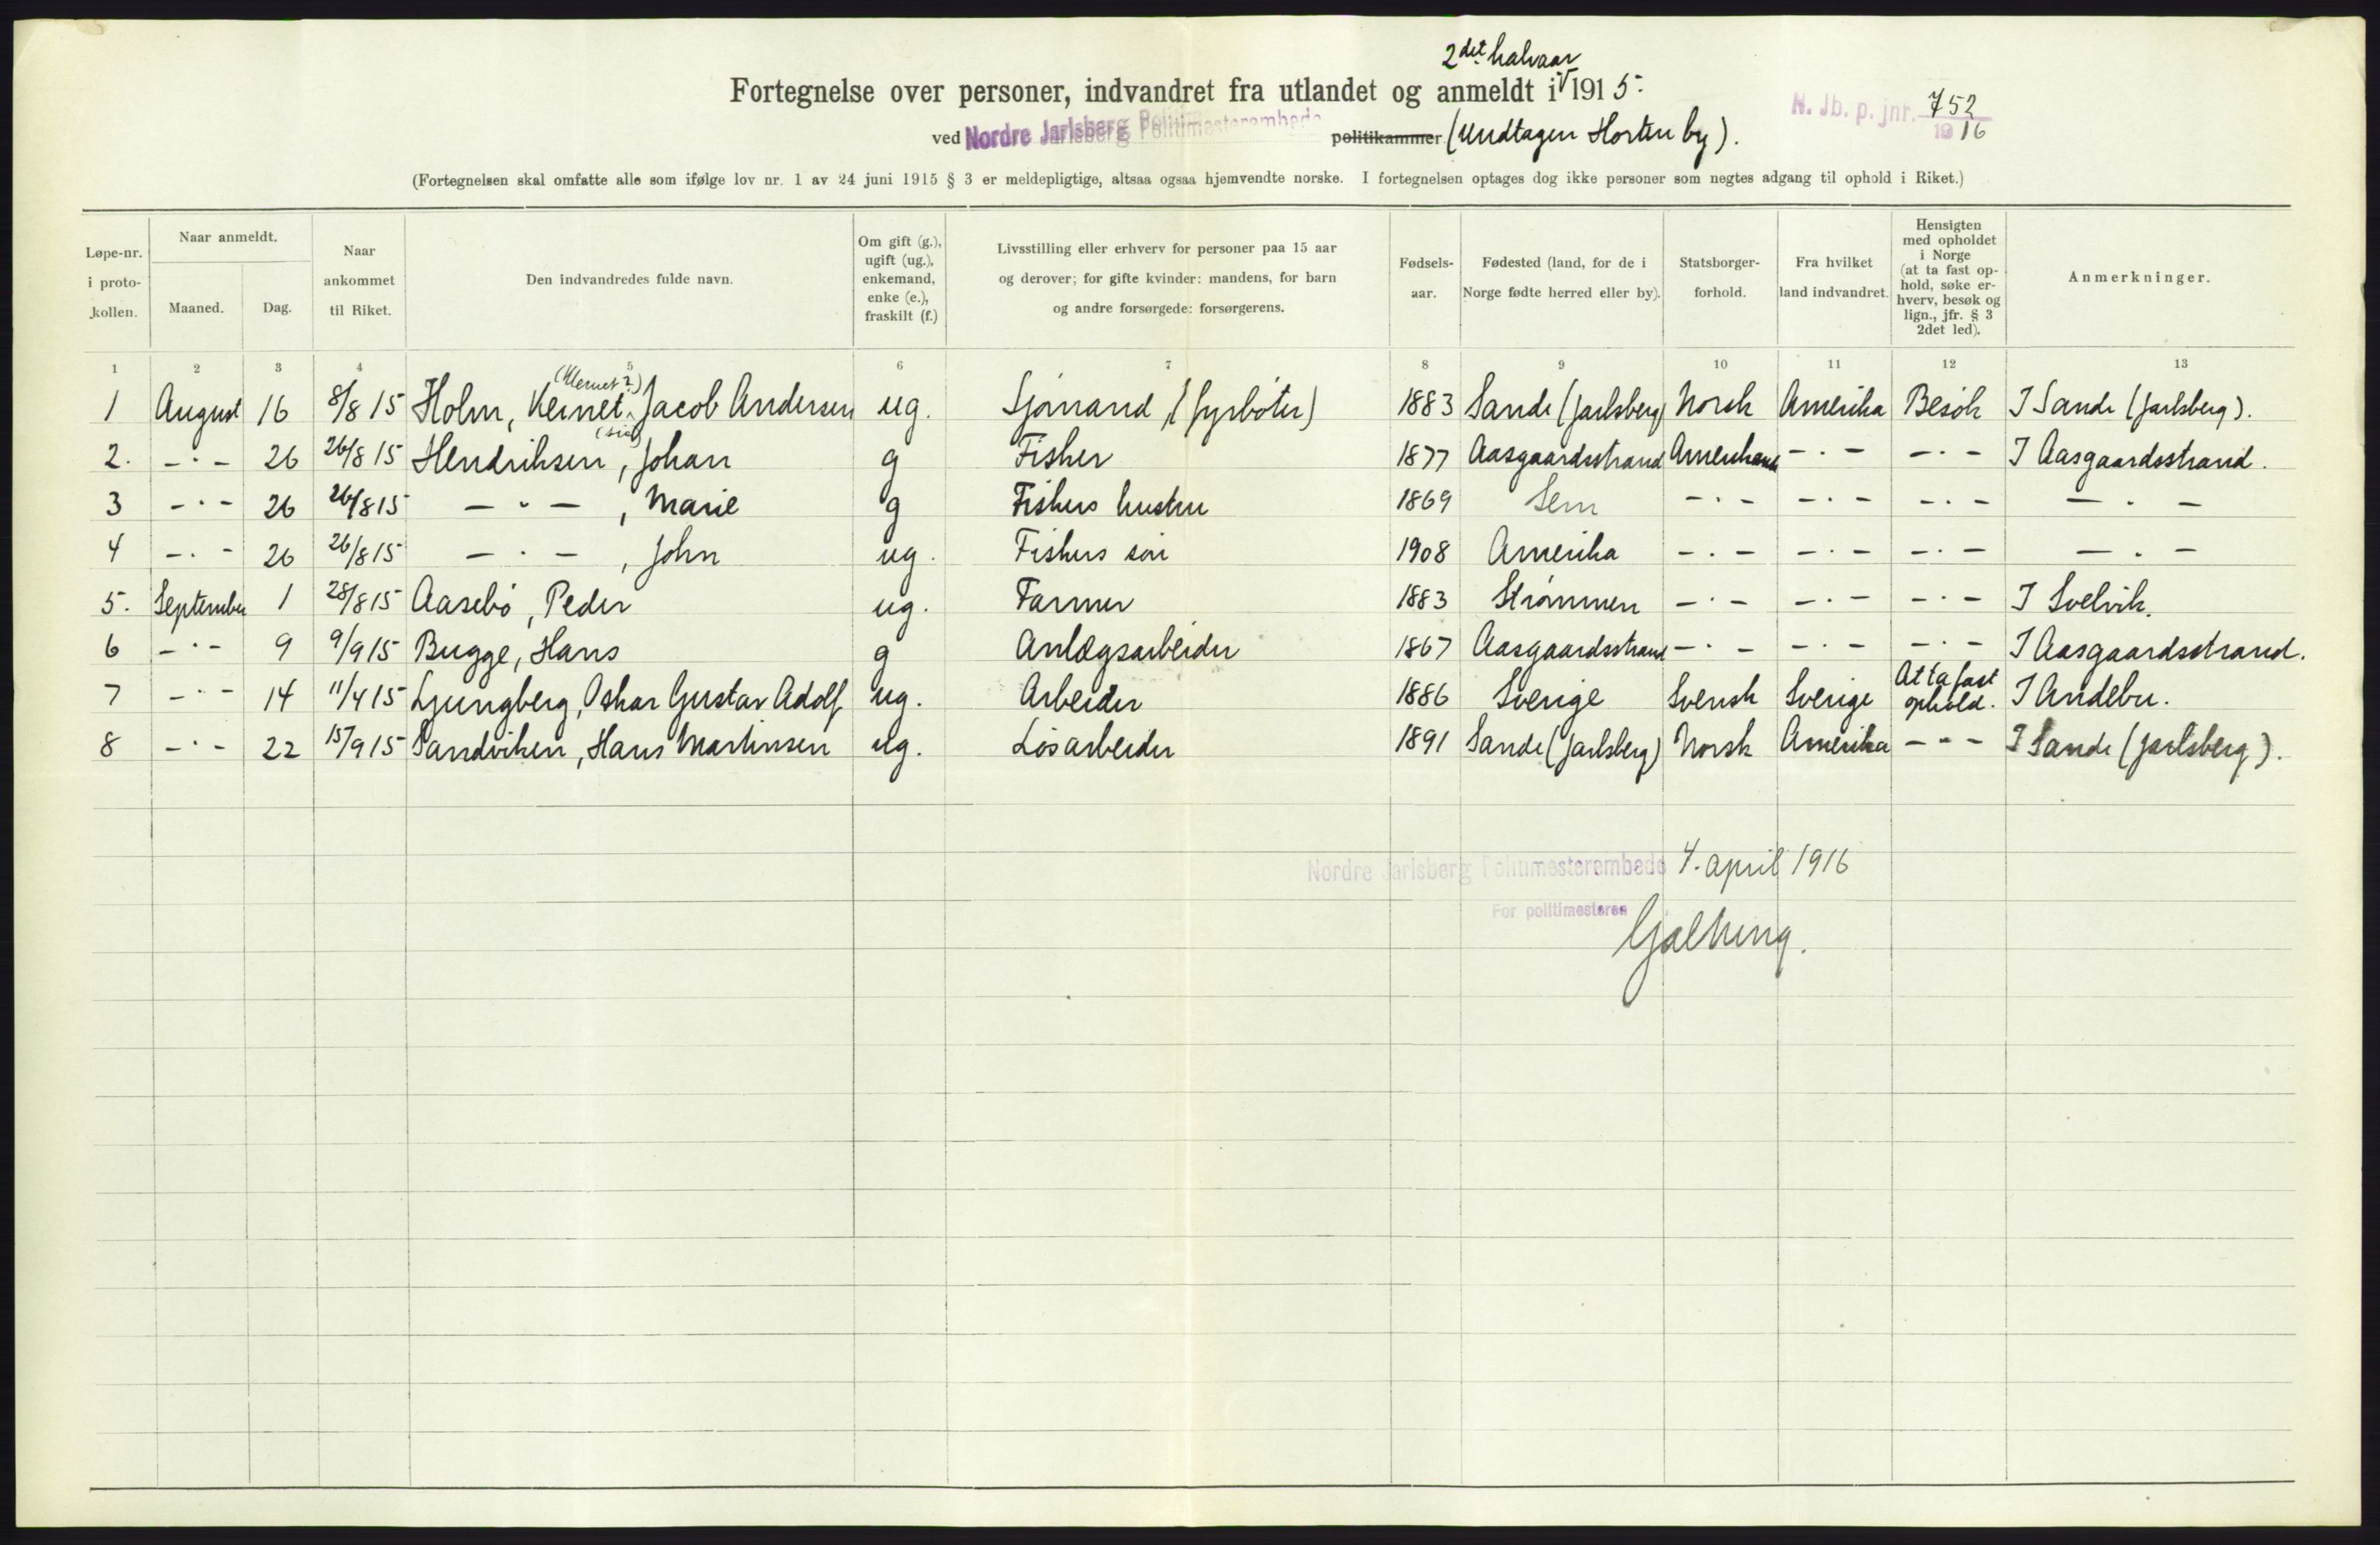 2det halvaar
Fortegnelse over personer, indvandret fra utlandet og anmeldt i 1915.
N. Jb. p. jnr. 752
1916
ved Nordre Jarlsberg Politimesterembede politikammer (undtagen Horten by).
(Fortegnelsen skal omfatte alle som ifølge lov nr. 1 av 24 juni 1915 § 3 er meldepligtige, altsaa ogsaa hjemvendte norske. I fortegnelsen optages dog ikke personer som negtes adgang til ophold i Riket.)
Løpe-nr. i proto-kollen.
Naar anmeldt.
Maaned.
Dag.
Naar ankommet til Riket.
Den indvandredes fulde navn.
Om gift (g.), ugift (ug.), enkemand, enke (e.), fraskilt (f.)
Livsstilling eller erhverv for personer paa 15 aar og derover; for gifte kvinder: mandens, for barn og andre forsørgede: forsørgerens.
Fødsels-aar.
Fødested (land, for de i Norge fødte herred eller by).
Statsborger-forhold.
Fra hvilket land indvandret.
Hensigten med opholdet i Norge (at ta fast op-hold, søke er-hverv, besøk og lign., jfr. § 3 2det led).
Anmerkninger.
1 2 3 4 5 6 7 8 9 10 11 12 13
1 August 16 8/8 15 Holm, Kernet (sic) Jacob Andersen ug. Sjømand (fyrbøter) 1883 Sande (Jarlsberg) Norsk Amerika Besøk I Sande (Jarlsberg).
2. -·- 26 26/8 15 Hendriksen, Johan g Fisker 1877 Aasgaardsstrand Amerikansk -·- -·- I Aasgaardsstrand.
3 -·- 26 26/8 15 -·-, Marie g Fiskers hustru 1869 Sem -·- -·- -·- -·-
4 -·- 26 26/8 15 -·-, John ug. Fiskers søn 1908 Amerika -·- -·- -·- -·-
5. September 1 28/8 15 Aasebø, Peder ug. Farmer 1883 Strømmen -·- -·- -·- I Svelvik.
6 -·- 9 9/9 15 Bugge, Hans g Anlægsarbeider 1867 Aasgaardsstrand -·- -·- -·- I Aasgaardsstrand.
7 -·- 14 11/4 15 Ljungberg, Oskar Gustav Adolf ug. Arbeider 1886 Sverige Svensk Sverige At ta fast ophold. I Andebu.
8 -·- 22 15/9 15 Sandviken, Hans Martinsen ug. Løsarbeider 1891 Sande (Jarlsberg) Norsk Amerika -·- I Sande (Jarlsberg).
Nordre Jarlsberg Politimesterembede 4. april 1916
For politimesteren